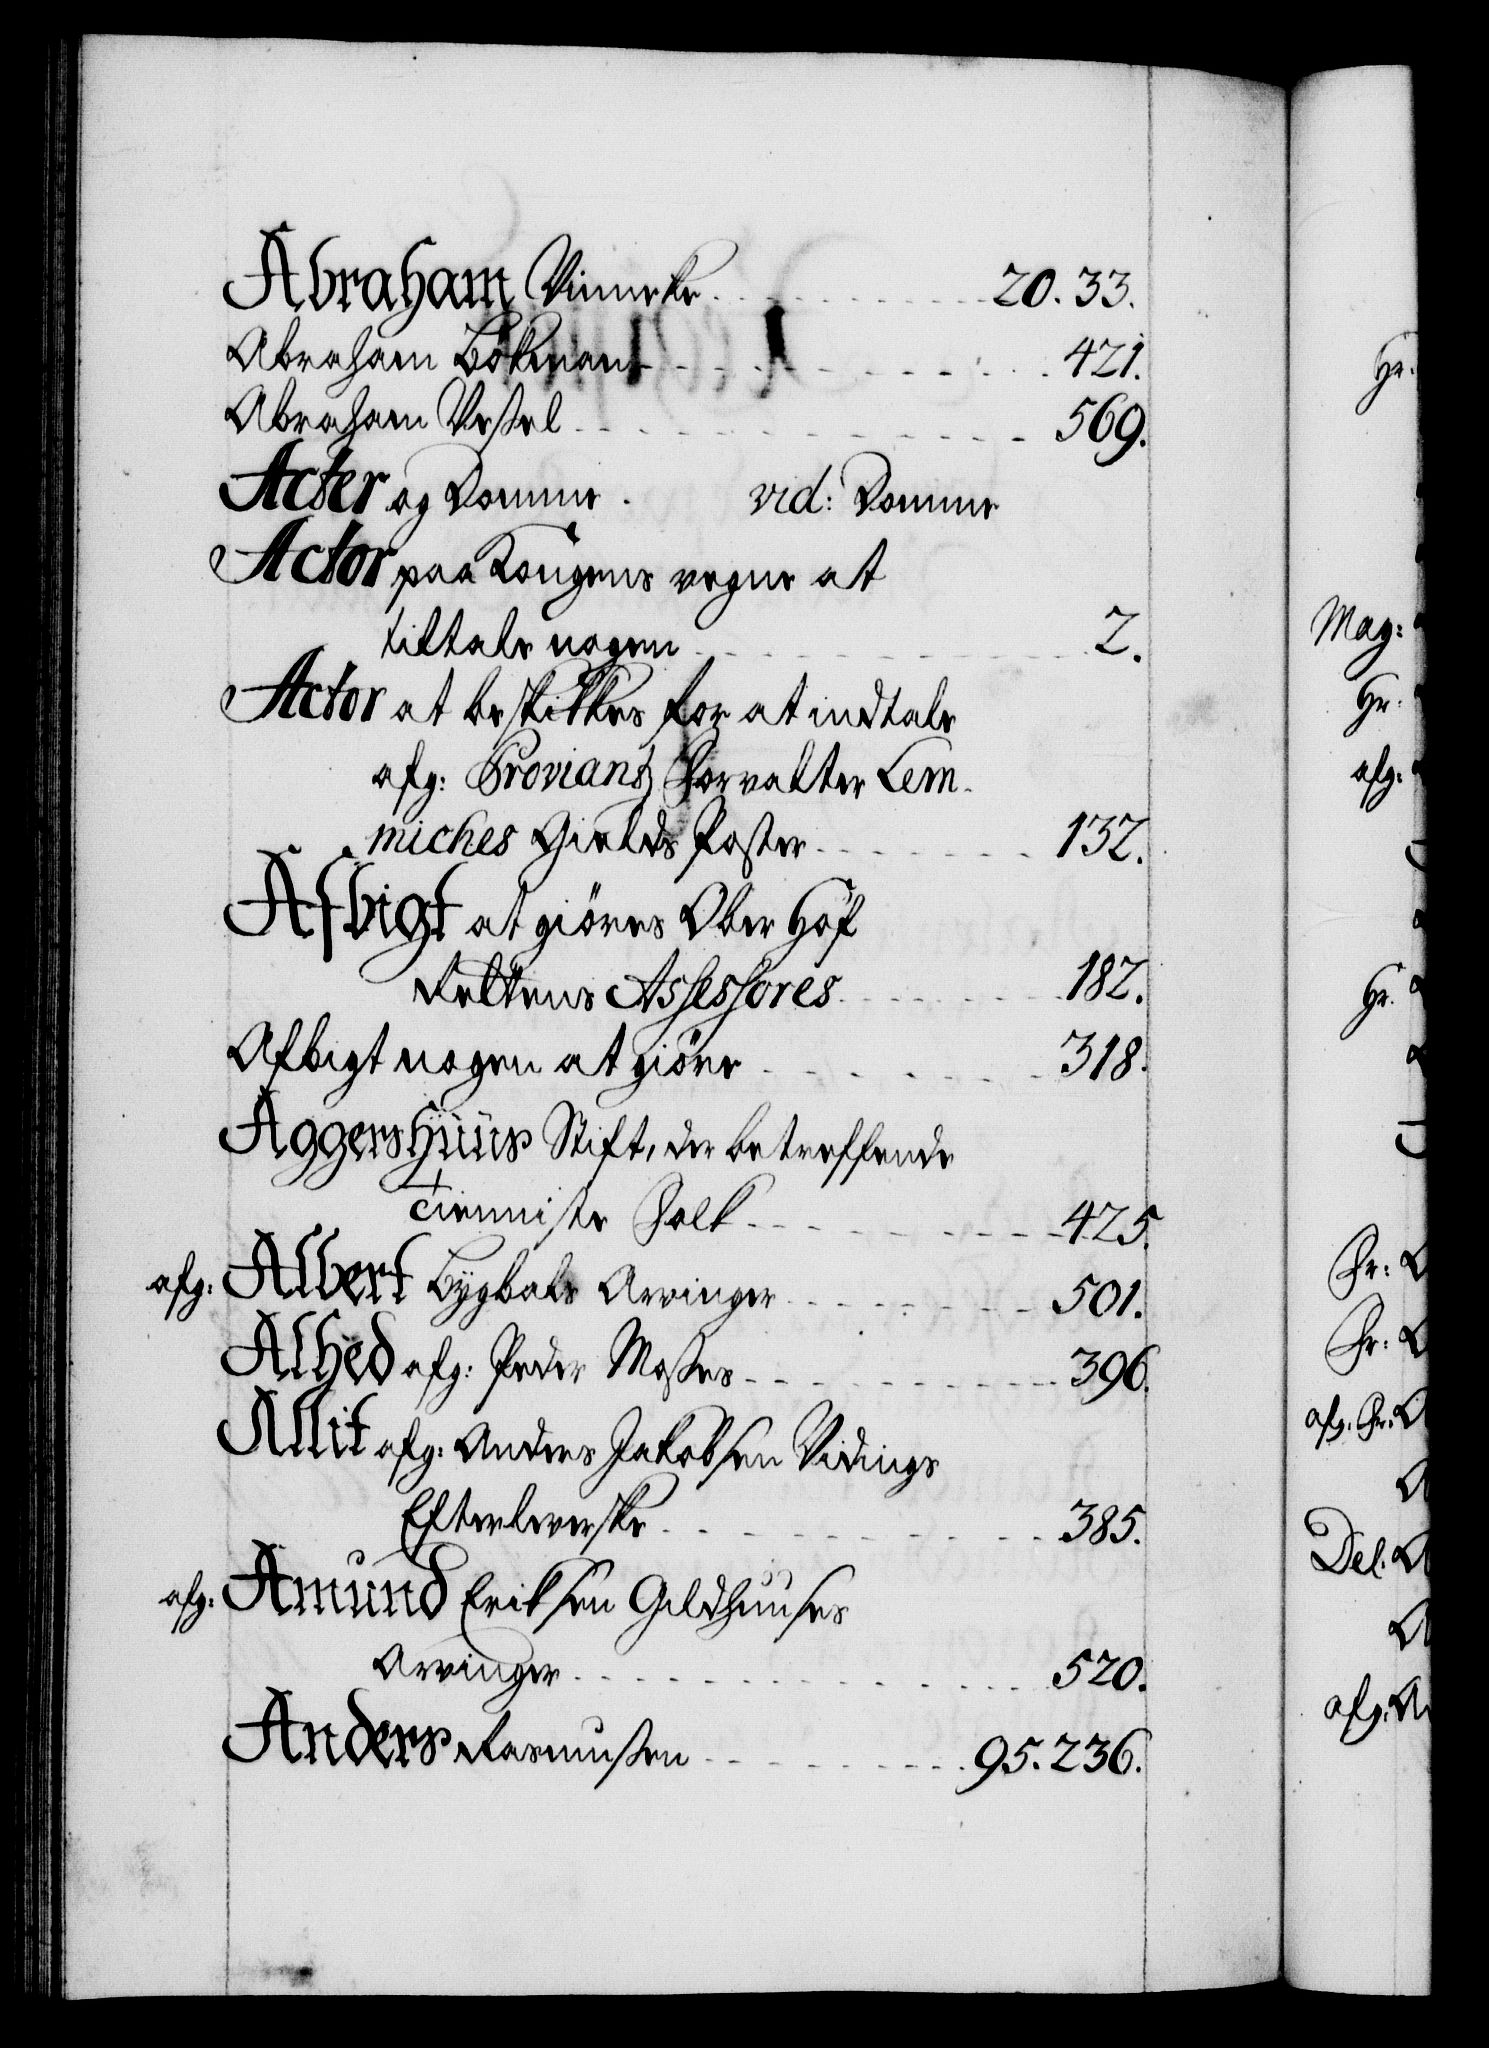 Abraham Vinneke 20. 33.
Abraham Bökman 421.
Abraham Vessel 569.
Acter og Domme vid: Domme
Actor paa Kongens vegne at
tiltale nogen 2.
Actor at beskikkes for at indtale
afg: Proviant Forvalter Lem-
miches Gields Poster 132.
Afbigt at giöres Ober Hof
Rettens Assessores 182.
Afbigt nogen at giöre 318.
Aggershuus Stift, der betreffende
Tienniste Folk 425.
afg: Albert Arvinger 501.
Alhed afg: Peder Moses 396.
Allit afg: Anders Jakobsen Vidings
Efterleverske 385.
afg: Amund Eriksen Gildhuuses
Arvinger 520.
Anders Rasmussen 95. 236.
Hr.
Mag:
Hr:
afg:
Hr.
Fr:
Fr:
afg. Fr:
Del.
afg.